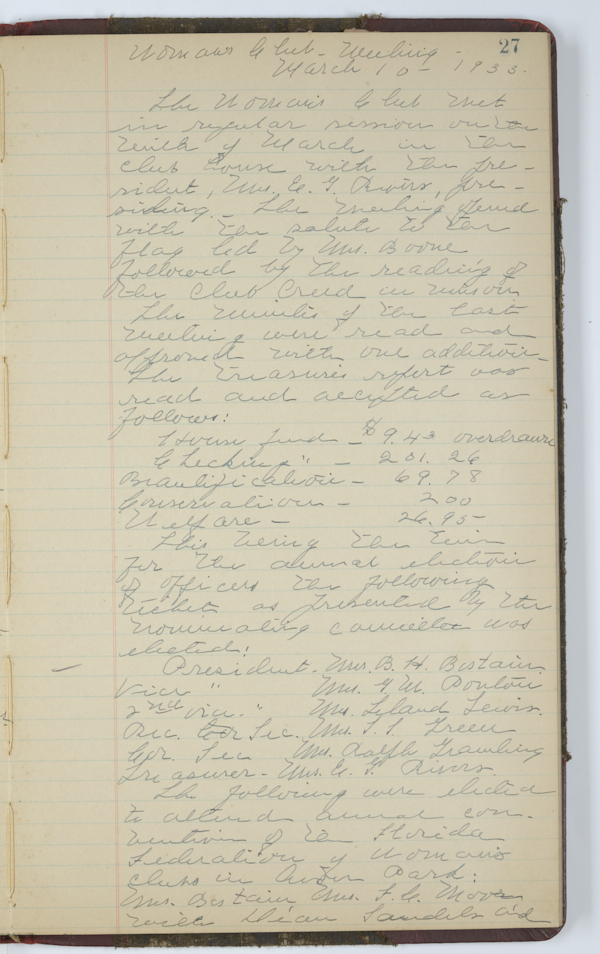 27
Woman's Club - Meeting -
March 10 - 1933.
The Woman's Club met
in regular session on the
tenth of March in the
club house with the pre-
sident, Mrs. E. G. Rivers, pre-
siding. - The meeting opened
with the salute to the
flag led by Mrs. Boone
followed by the reading of
the Club Creed in unison
The minutes of the last
meeting were read and
approved with one addition -
The Treasurer's report was
read and accepted as
follows:
House fund - $9.43 overdrawn
Checking " - 201.26
Beautification - 69.78
Conservation - 200
Welfare - 26.95
This being the time
for the annual election
of officers the following
ticket as presented by the
nominating committee was
elected:
President - Mrs. B. H. Bostain
Vice " Mrs. Poulton
2nd vice " Mrs. Leland Lewis.
Rec. Sec. Mrs. Green
Cor. Sec Mrs. Ralph Grambling
Treasurer - Mrs. E. G. Rivers.
The following were elected
to attend annual con-
vention of the Florida
Federation of Woman's
clubs in Avon Park:
Mrs. Bostain, Mrs. Moore
with Sandels and